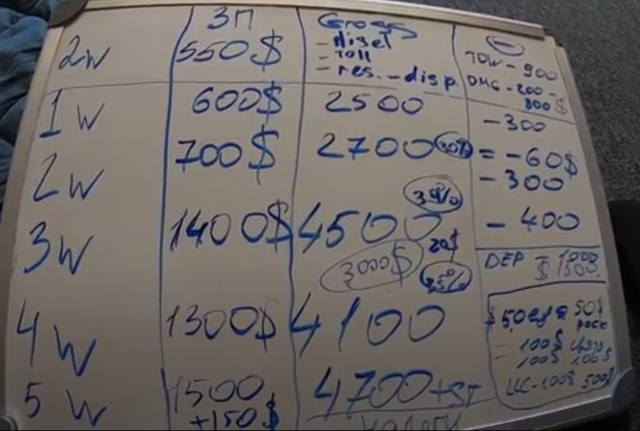 2w
ЗП
550$
Gross
- disel
- Toll
- res. - disp
TOW - 900
DMG - 200 -
800$
1w
600$
2500
- 300
2w
700$
2700
= -60$
- 300
3w
1400$
4500
30%
3000$
20$
- 400
DEP
4w
1300$
4100
5w
1500
+150$
4700+ST
налоги
50$
100$
100$ 100$
LLC-100$ 500$